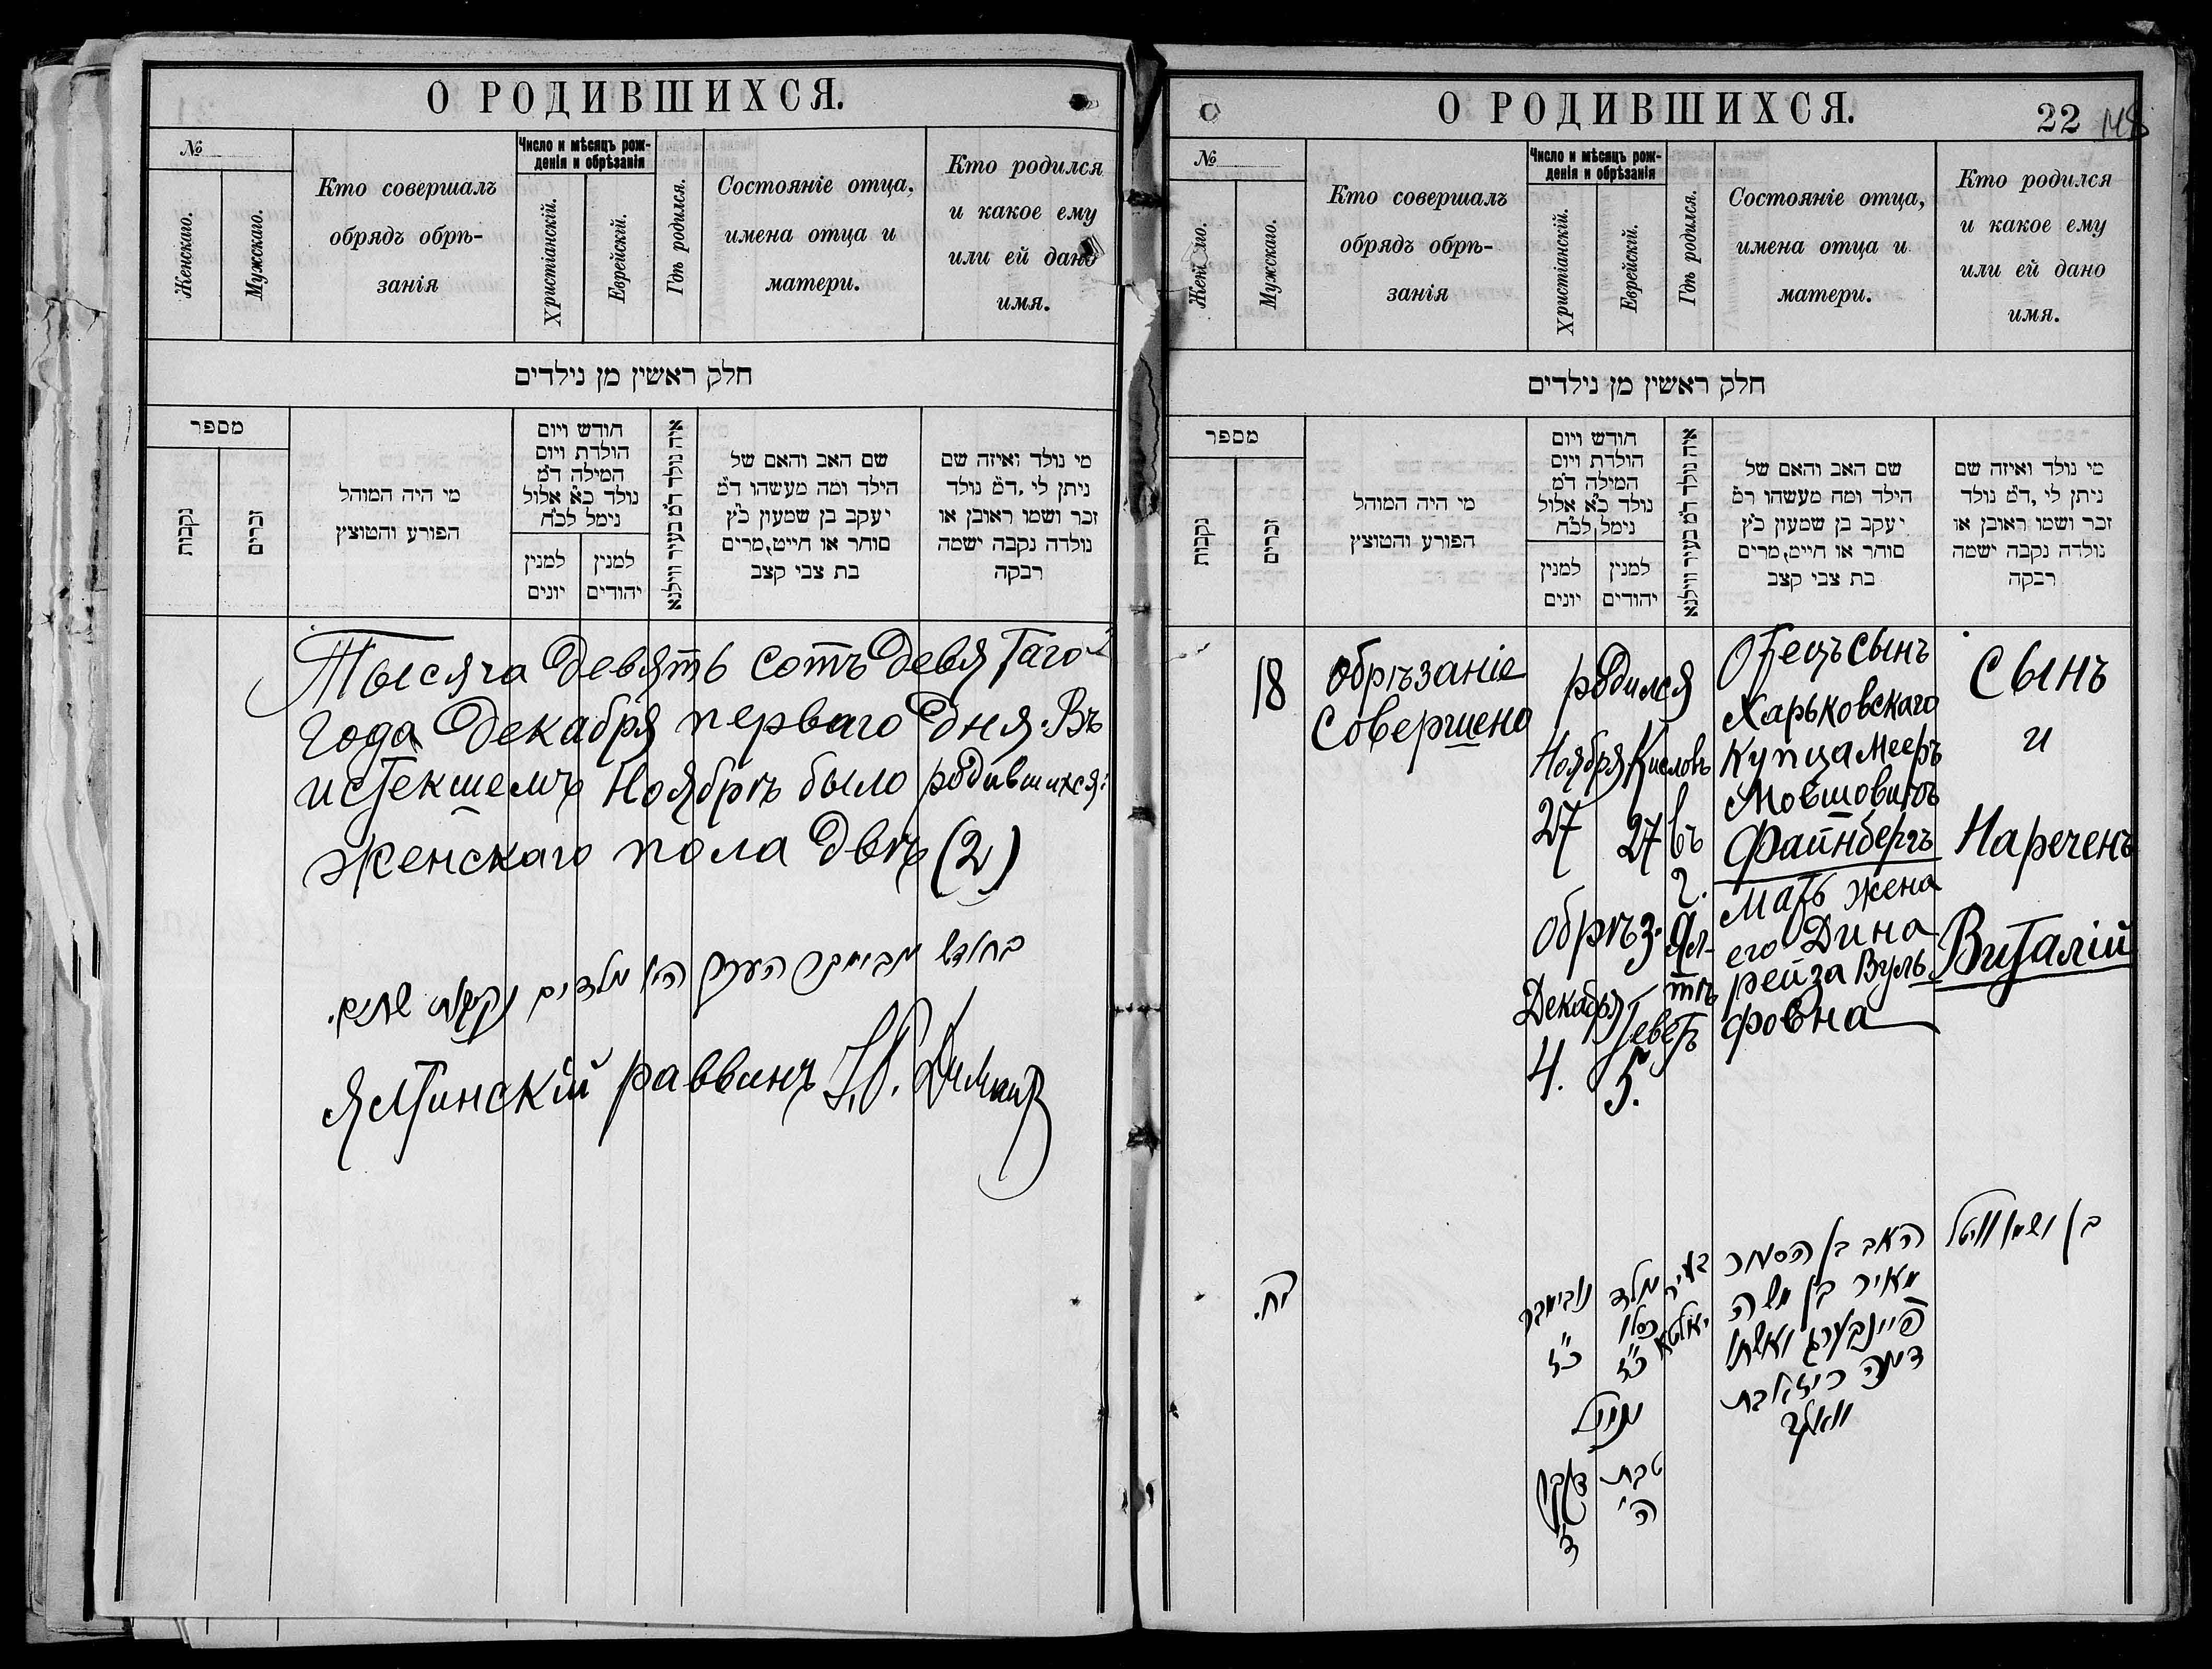 О РОДИВШИХСЯ.
№
Женскаго.
Мужскаго.
Кто совершалъ
обрядъ обрѣ-
занія
Число и мѣсяцъ рож-
денія и обрѣзанія
Христіанскій.
Еврейскій.
Гдѣ родился.
Состояніе отца,
имена отца и
матери.
Кто родился
и какое ему
или ей дано
имя.
חלק ראשון מן נילדים
מספר
נקבות
זכרים
מי היה המוהל
הפורע והמוצץ
חודש ויום
הולדת ויום
המילה ד״מ
נולד כ״א אלול
נימל לכ״ח
למנין
יונים
למנין
יהודים
איה נולד ד״מ בעיר ווילנא
שם האב והאם של
הילד ומה מעשהו ד״מ
יעקב בן שמעון כ״ץ
סוחר או חייט, מרים
בת צבי קצב
מי נולד ואיזה שם
ניתן לי, ד״מ נולד
זכר ושמו ראובן או
נולדה נקבה ישמה
רבקה
Тысяча девять сотъ девятаго
года Декабря перваго дня. Въ
истекшемъ Ноябрѣ было родившихся:
Женскаго пола двѣ (2)
בחודש
נקבות שתים.
Ялтинскій раввинъ
О РОДИВШИХСЯ.
22
148
№
Мужскаго.
Кто совершалъ
обрядъ обрѣ-
занія
Число и мѣсяцъ рож-
денія и обрѣзанія
Христіанскій.
Еврейскій.
Гдѣ родился.
Состояніе отца,
имена отца и
матери.
Кто родился
и какое ему
или ей дано
имя.
חלק ראשון מן נילדים
מספר
נקבות
זכרים
מי היה המוהל
הפורע והמוצץ
חודש ויום
הולדת ויום
המילה ד״מ
נולד כ״א אלול
נימל לכ״ח
למנין
יונים
למנין
יהודים
איה נולד ד״מ בעיר ווילנא
שם האב והאם של
הילד ומה מעשהו ד״מ
יעקב בן שמעון כ״ץ
סוחר או חייט, מרים
בת צבי קצב
מי נולד ואיזה שם
ניתן לי, ד״מ נולד
זכר ושמו ראובן או
נולדה נקבה ישמה
רבקה
18
Обрѣзаніе
Совершено
родился
Ноября
27
Кислевъ
27
Обрѣз.
Декабря
4.
Теветъ
5.
въ
г.
Ял-
тѣ
Отецъ сынъ
Харьковскаго
Купца Мееръ
Мовшовичъ
Файнбергъ
Мать жена
его Дина
рейза Вуль
фовна
Сынъ
и
Нареченъ
Виталій
יח.
נובימבר
כ״ז
נולד
כסלו
כ״ז
נימול
טבת
ה׳
ד׳
בעיר
יאלטא
האב בן הסוחר
מאיר בן משה
פיינבערג ואשתו
דינה רייזא בת
וואלף
בן ושמו וויטל